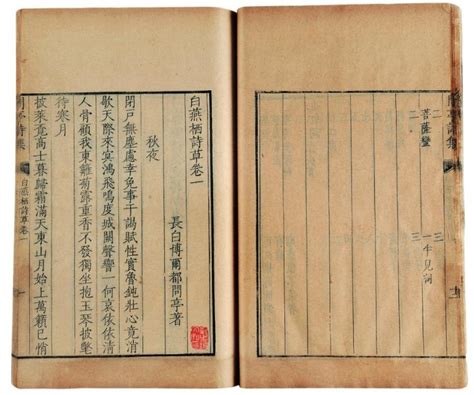 菩薩蠻
一半兒詞
白燕栖詩草卷一
長白博爾都問亭著
秋夜
閉戸無塵慮幸免事干謁賦性實魯鈍壯心竟消
歇天際來賓鴻飛鳴度城闕聲響一何哀依依清
人骨顧我東籬菊露重香不發獨坐抱玉琴披氅
待寒月
披萊竟高士暮歸霜滿天東山月始上萬籟已悄
白燕栖詩草卷一